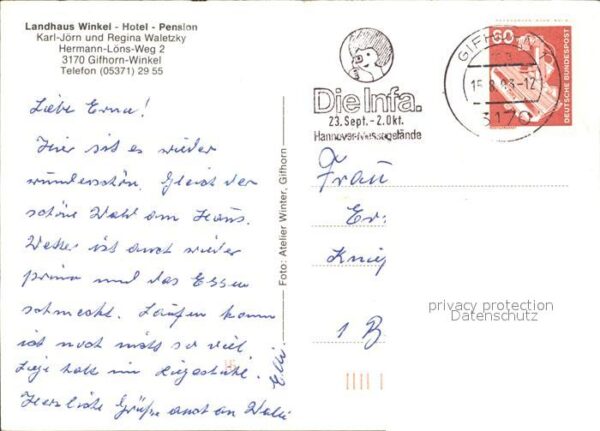 Landhaus Winkel - Hotel - Pension
Karl-Jörn und Regina Waletzky
Hermann-Löns-Weg 2
3170 Gifhorn-Winkel
Telefon (05371) 29 55
Liebe Erna!
Hier ist es wieder
wunderschön. Gleich der
schöne Wald am Haus.
Wetter ist auch wieder
prima und das Essen
schmeckt. Laufen kann
ich noch nicht so viel
Liege halt im Liegestuhl.
Herzliche Grüße auch an Walli
Elli.
Foto: Atelier Winter, Gifhorn
Die Infa.
23. Sept. - 2. Okt.
Hannover-Messegelände
GIFHORN
3170
60
DEUTSCHE BUNDESPOST
Frau
Er
Knie
1 B
privacy protection
Datenschutz